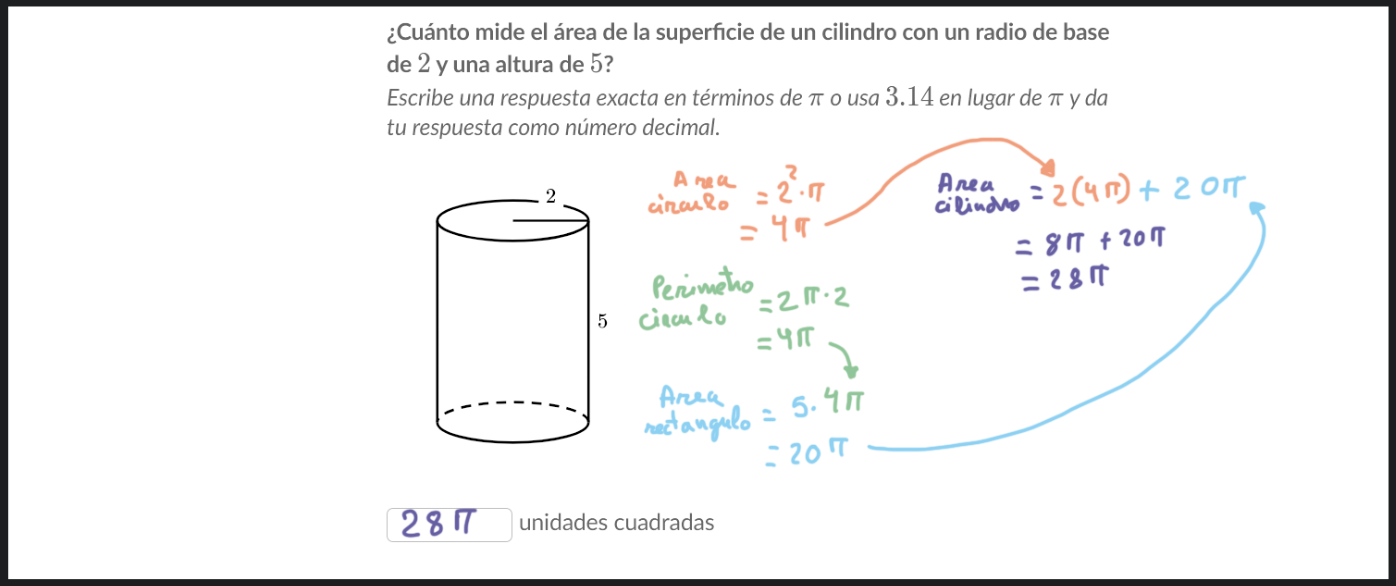 ¿Cuánto mide el área de la superficie de un cilindro con un radio de base
de 2 y una altura de 5?
Escribe una respuesta exacta en términos de π o usa 3.14 en lugar de π y da
tu respuesta como número decimal.
2
5
Area
circulo = 2²·π
= 4π
Perimetro
circulo = 2π·2
= 4π
Area
rectangulo = 5·4π
= 20π
Area
cilindro = 2(4π) + 20π
= 8π + 20π
= 28π
28π unidades cuadradas